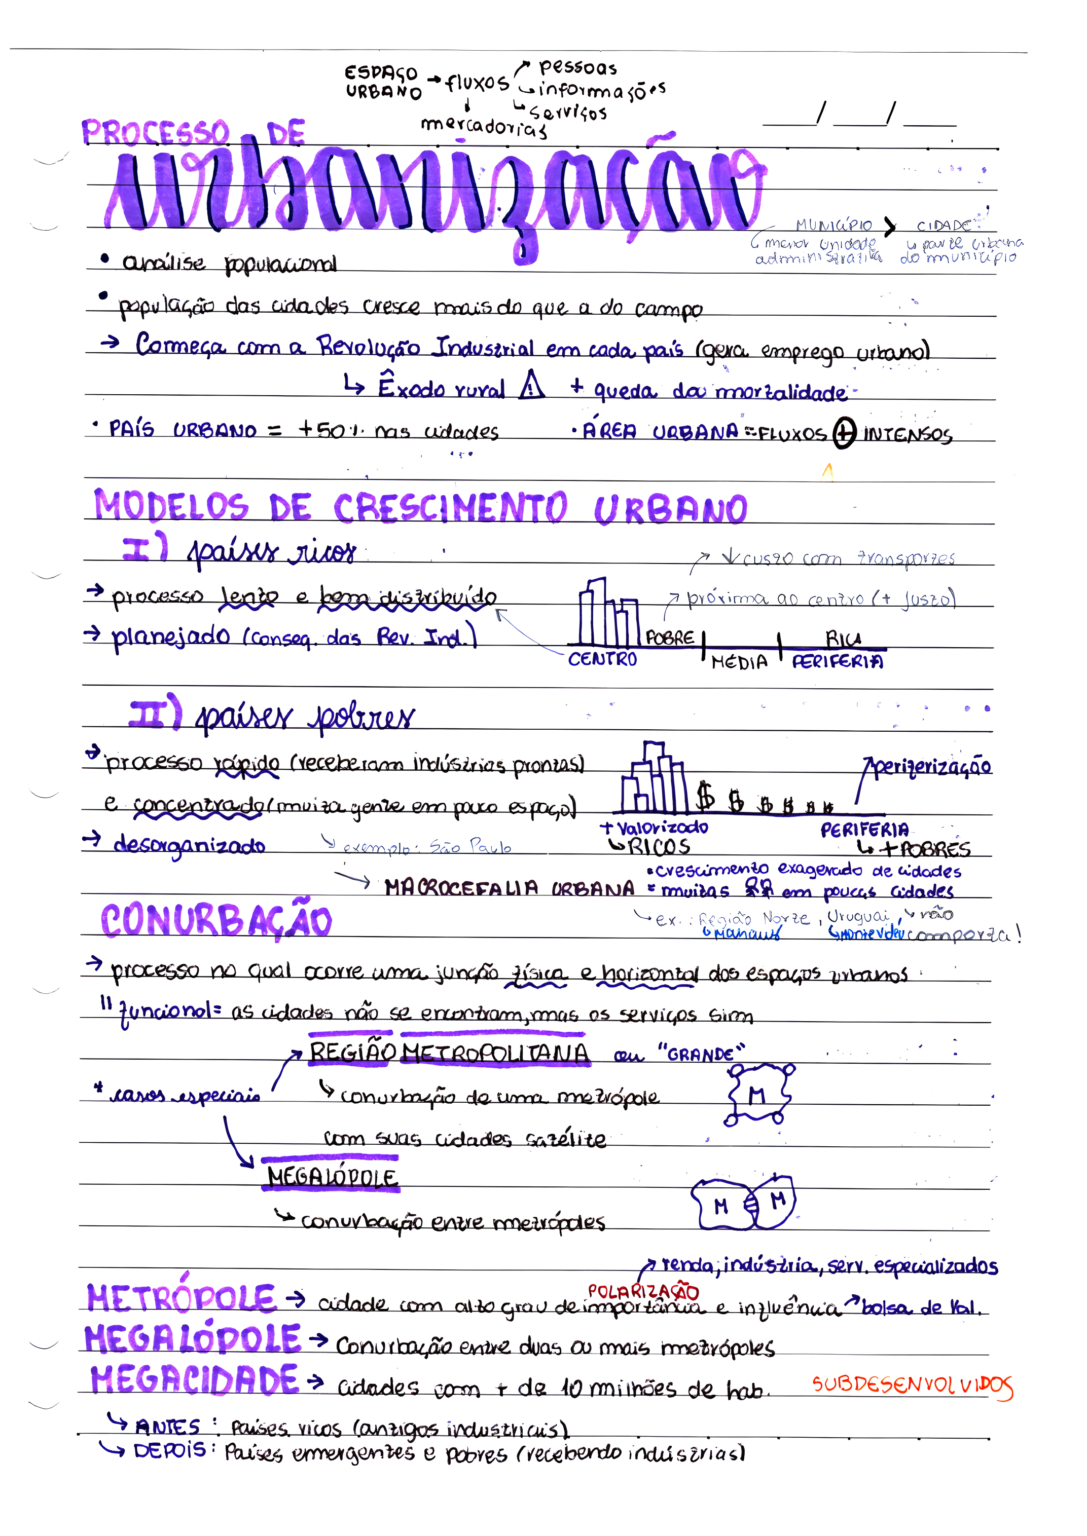 ESPAÇO URBANO → fluxos → pessoas
informações
serviços
mercadorias
___/___/___
PROCESSO DE
urbanização
MUNICÍPIO > CIDADE
↳ menor unidade administrativa
↳ parte urbana do município
• análise populacional
• população das cidades cresce mais do que a do campo
→ Começa com a Revolução Industrial em cada país (gera emprego urbano)
↳ Êxodo rural ⚠ + queda da mortalidade
• PAÍS URBANO = +50% nas cidades
• ÁREA URBANA = FLUXOS ⊕ INTENSOS
MODELOS DE CRESCIMENTO URBANO
I) países ricos
→ ↓ custo com transportes
→ processo lento e bem distribuído
→ próxima ao centro (+ justo)
→ planejado (conseq. das Rev. Ind.)
CENTRO POBRE | MÉDIA | RICA PERIFERIA
II) países pobres
→ processo rápido (receberam indústrias prontas)
periferização
e concentrado (muita gente em pouco espaço)
$ $ $ $ $ $
+ valorizado
↳ RICOS
PERIFERIA
↳ + POBRES
→ desorganizado
↳ exemplo: São Paulo
→ MACROCEFALIA URBANA
• crescimento exagerado de cidades
= muitas em poucas cidades
↳ ex.: Região Norte, Uruguai, ↳ não comporta!
↳ Manaus ↳ Montevideu
CONURBAÇÃO
→ processo no qual ocorre uma junção física e horizontal dos espaços urbanos
" funcional = as cidades não se encontram, mas os serviços sim
* casos especiais
→ REGIÃO METROPOLITANA ou "GRANDE"
↳ conurbação de uma metrópole
com suas cidades satélite
M
MEGALÓPOLE
↳ conurbação entre metrópoles
M M
→ renda, indústria, serv. especializados
POLARIZAÇÃO
METRÓPOLE → cidade com alto grau de importância e influência → bolsa de Val.
MEGALÓPOLE → Conurbação entre duas ou mais metrópoles
MEGACIDADE → cidades com + de 10 milhões de hab. SUBDESENVOLVIDOS
↳ ANTES: Países ricos (antigos industriais)
↳ DEPOIS: Países emergentes e pobres (recebendo indústrias)